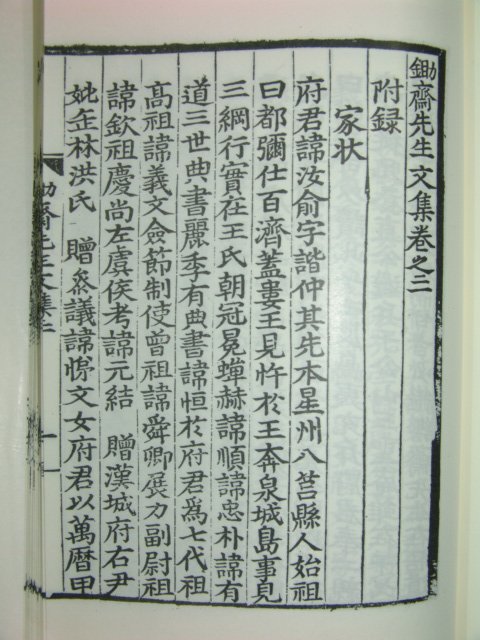 鋤齋先生文集卷之二
附録
家狀
府君諱汝俞字諧仲其先本星州八莒縣人始祖
曰都彌仕百濟蓋婁王見忤於王奔泉城島事見
三綱行實在王氏朝冠冕蟬赫諱順諱忠朴諱有
道三世典書麗季有典書諱恒於府君爲七代祖
高祖諱義文僉節制使曾祖諱舜卿展力副尉祖
諱欽祖慶尚左虞侯考諱元結 贈漢城府右尹
妣缶林洪氏 贈叅議諱憬文女府君以萬曆甲
鋤齋先生文集二
一